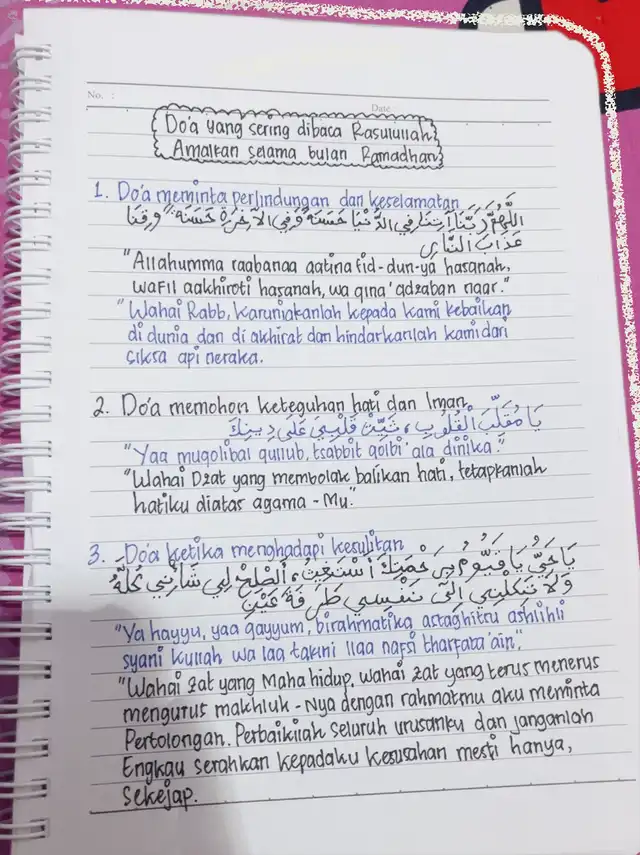 No. :
Date
Do'a yang sering dibaca Rasulullah
Amalkan selama bulan Ramadhan
1. Do'a meminta perlindungan dan keselamatan
اللَّهُمَّ رَبَّنَا آتِنَا فِي الدُّنْيَا حَسَنَةً وَفِي الْآخِرَةِ حَسَنَةً وَقِنَا
عَذَابَ النَّارِ
"Allahumma raabanaa aatina fid-dun-ya hasanah,
wafil aakhiroti hasanah, wa qina 'adzaban naar."
"Wahai Rabb, karuniakanlah kepada kami kebaikan
di dunia dan di akhirat dan hindarkanlah kami dari
siksa api neraka.
2. Do'a memohon keteguhan hati dan Iman
يَا مُقَلِّبَ الْقُلُوبِ، ثَبِّتْ قَلْبِي عَلَى دِينِكَ
"Yaa muqolibal qullub, tsabbit qolbi 'ala dinika."
"Wahai Dzat yang membolak balikan hati, tetapkanlah
hatiku diatas agama-Mu."
3. Do'a ketika menghadapi kesulitan
يَا حَيُّ يَا قَيُّومُ بِرَحْمَتِكَ أَسْتَغِيثُ، أَصْلِحْ لِي شَأْنِي كُلَّهُ
وَلَا تَكِلْنِي إِلَى نَفْسِي طَرْفَةَ عَيْنٍ
"Ya hayyu, yaa qayyum, birahmatika astaghitsu ashlihli
syani kullah wa laa takini ilaa nafsi tharfata 'ain."
"Wahai zat yang Maha hidup, wahai zat yang terus menerus
mengurus makhluk-Nya dengan rahmatmu aku meminta
Pertolongan. Perbaikilah seluruh urusanku dan janganlah
Engkau serahkan kepadaku kesusahan mesti hanya,
sekejap.